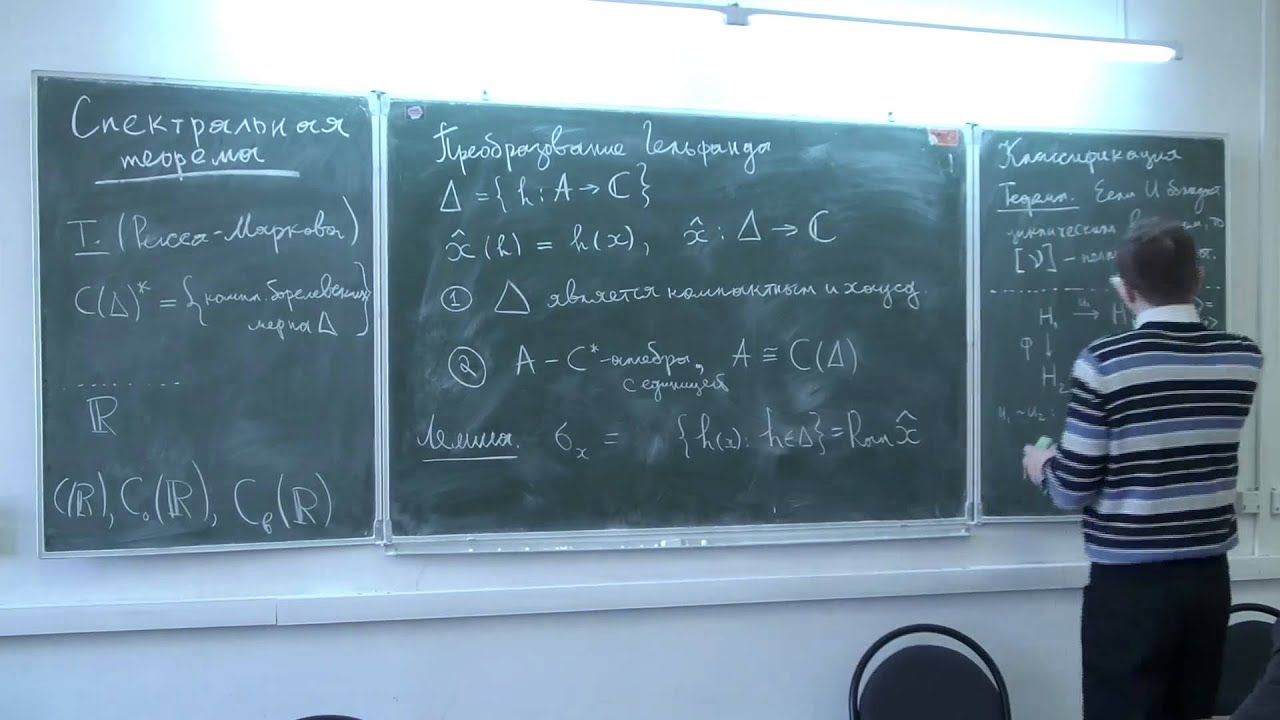 Спектральная
теорема
Т. (Рисса-Маркова)
C(Δ)* = { компл. борелевские
мера на Δ }
ℝ
C(ℝ), C₀(ℝ), C_b(ℝ)
Преобразование Гельфанда
Δ = {h : A → ℂ}
x̂(h) = h(x), x̂ : Δ → ℂ
① Δ является компактным и хаусд.
② A – C*-алгебра, A ≅ C(Δ)
с единицей
Лемма. σₓ = {h(x) : h ∈ Δ} = Ran x̂
Классификация
Теорема. Если U обладает
циклическим то
[ν]
H₁ → H
φ ↓
H₂
u₁ ~ u₂ :